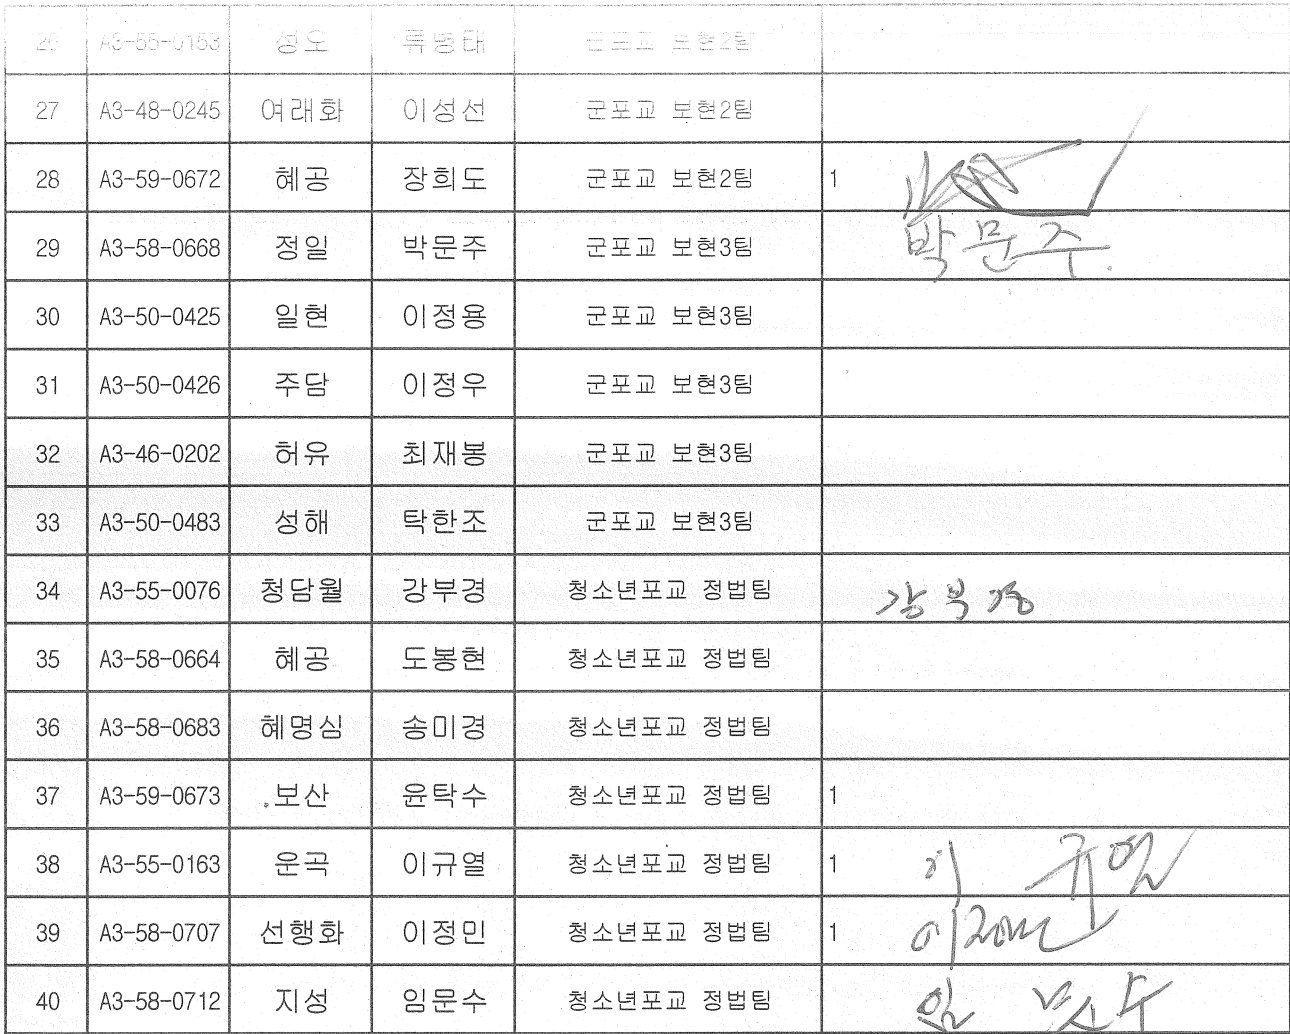 26 A3-55-0153 성오 류병태 군포교 보현2팀
27 A3-48-0245 여래화 이성선 군포교 보현2팀
28 A3-59-0672 혜공 장희도 군포교 보현2팀 1
29 A3-58-0668 정일 박문주 군포교 보현3팀 박문주.
30 A3-50-0425 일현 이정용 군포교 보현3팀
31 A3-50-0426 주담 이정우 군포교 보현3팀
32 A3-46-0202 허유 최재봉 군포교 보현3팀
33 A3-50-0483 성해 탁한조 군포교 보현3팀
34 A3-55-0076 청담월 강부경 청소년포교 정법팀 강부경
35 A3-58-0664 혜공 도봉현 청소년포교 정법팀
36 A3-58-0683 혜명심 송미경 청소년포교 정법팀
37 A3-59-0673 보산 윤탁수 청소년포교 정법팀 1
38 A3-55-0163 운곡 이규열 청소년포교 정법팀 1 이 규열
39 A3-58-0707 선행화 이정민 청소년포교 정법팀 1 이정민
40 A3-58-0712 지성 임문수 청소년포교 정법팀 임 문수